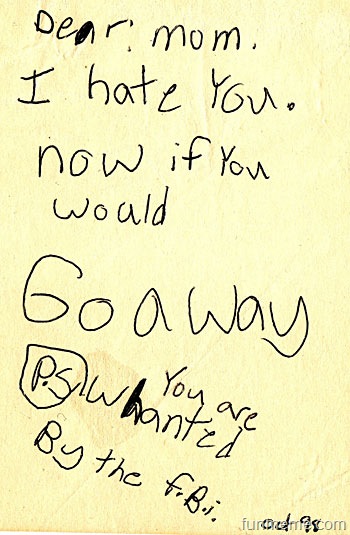 Dear: mom.
I hate You.
now if You
would
Go away
P.S. You are
Wanted
By the f.B.i.